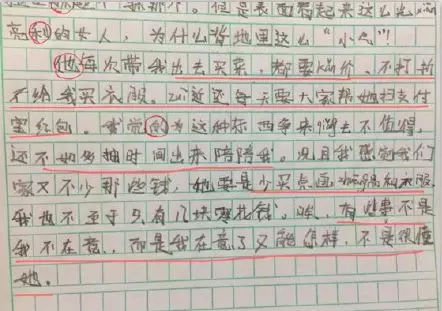 但是表面看起来这么光
亮的女人，为什么背地里这么“小气”！
他每次带我出去买菜，都要kan价，不打折
不给我买衣服。zui近还每天要大家帮她扫支付
宝红包。我觉的为这种东西争来争去不值得，
还不如多抽时间出来陪陪我。况且我感觉我们
家又不少那些钱，她要是少买点画 衣服
我也不至于只有几块零花钱。唉，有些事不是
我不在意，而是我在意了又能怎样，不是很懂
她。